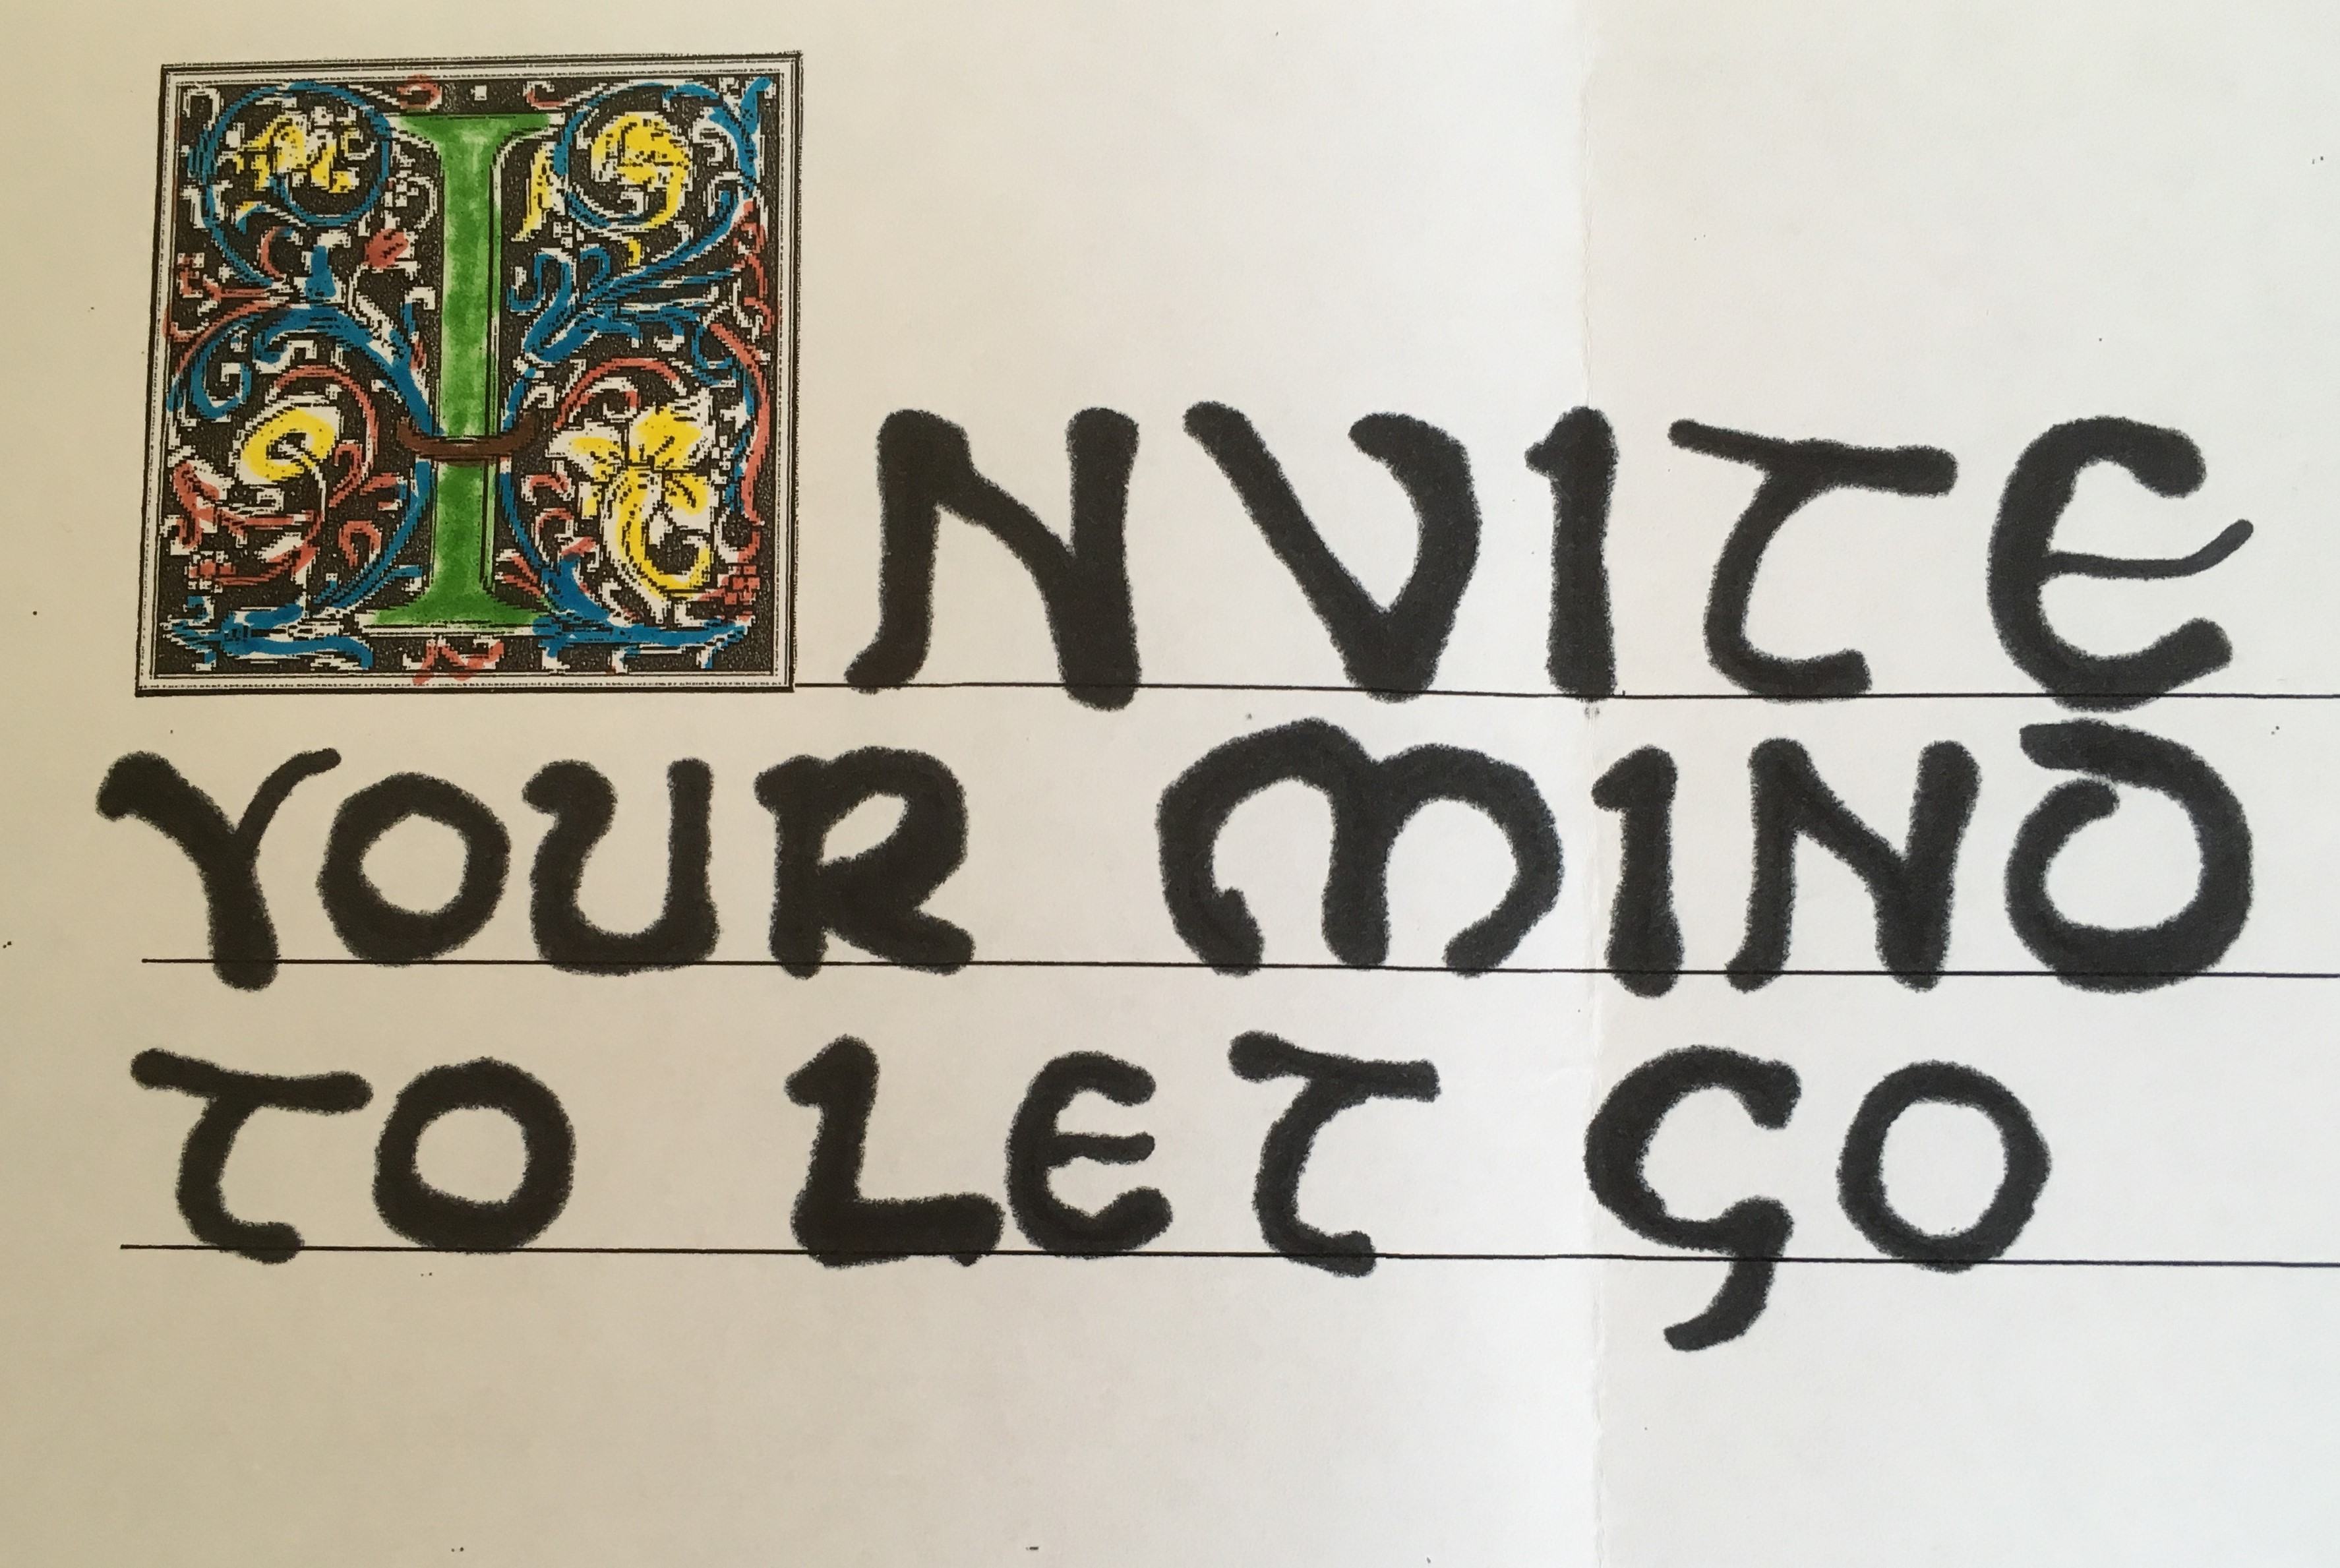 INVITE
YOUR MIND
TO LET GO